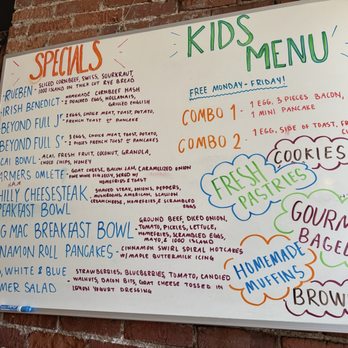 SPECIALS
RUEBEN - SLICED CORNBEEF, SWISS, SOURKRAUT,
1000 ISLAND IN THICK CUT RYE BREAD
IRISH BENEDICT - HOMEMADE CORNBEEF HASH
2 POACHED EGGS, HOLLANDAIS,
GRILLED ENGLISH
BEYOND FULL J - 2 EGGS, CHOICE MEAT, TOAST, POTATO,
FRENCH TOAST
BEYOND FULL S - 2 EGGS, CHOICE MEAT, TOAST, POTATO,
2 PIECES FRENCH TOAST
CAI BOWL - ACAI, FRESH FRUIT, COCONUT, GRANOLA,
CHOCO CHIPS, HONEY
RMERS OMLETE - GOAT CHEESE, BACON JAM, CARAMELIZED ONION
W/ HOMEFRIES & TOAST
HILLY CHEESESTEAK
EAKFAST BOWL - SHAVED STEAK, ONIONS, PEPPERS,
MUSHROOMS, AMERICAN,
CREAMCHEESE, HOMEFRIES, & SCRAMBLED
EGGS
G MAC BREAKFAST BOWL - GROUND BEEF, DICED ONION,
TOMATO, PICKLES, LETTUCE,
HOMEFRIES, SCRAMBLED EGGS,
MAYO & 1000 ISLAND
NNAMON ROLL PANCAKES - CINNAMON SWIRL SPIRAL HOTCAKES
W/ MAPLE BUTTERMILK ICING
D, WHITE & BLUE
MER SALAD - STRAWBERRIES, BLUEBERRIES, TOMATO, CANDIED
WALNUTS, BACON BITS, GOAT CHEESE TOSSED IN
LEMON YOGURT DRESSING
KIDS MENU
FREE MONDAY - FRIDAY!
COMBO 1 - 1 EGG, 3 PIECES BACON,
1 MINI PANCAKE
COMBO 2 - 1 EGG, SIDE OF TOAST,
COOKIES
FRESH
PASTRIES
GOURM
BAGEL
HOMEMADE
MUFFINS
BROW